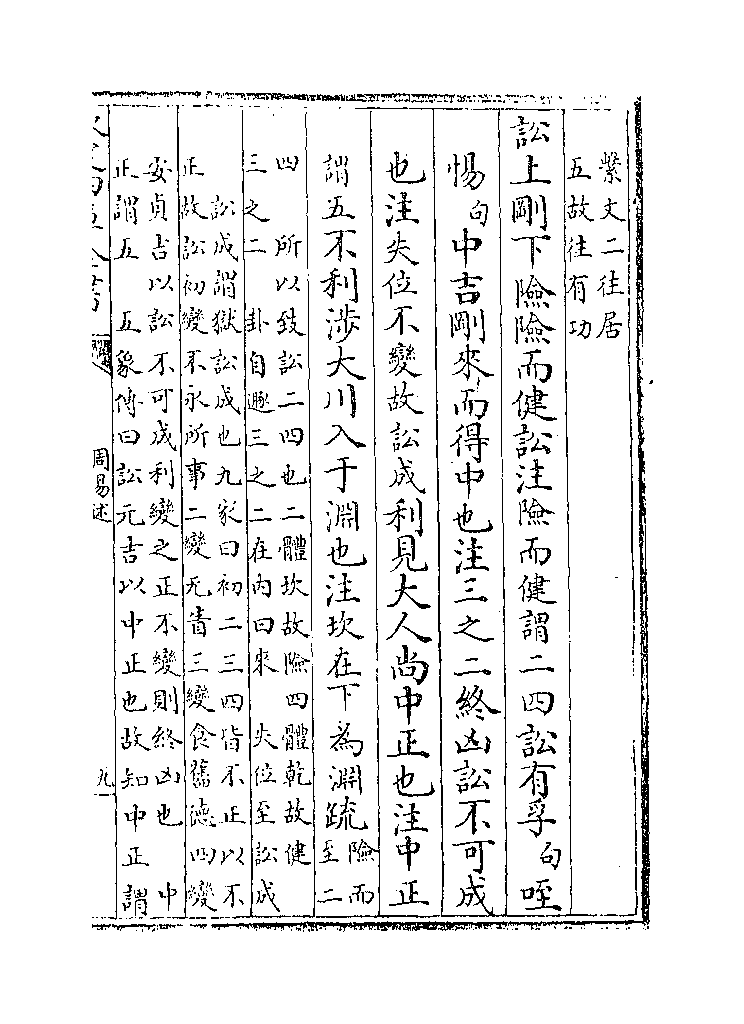 繫文二往居
五故往有功
訟上剛下險險而健訟注險而健謂二四訟有孚句咥
惕句中吉剛來而得中也注三之二終凶訟不可成
也注失位不變故訟成利見大人尚中正也注中正
謂五不利涉大川入于淵也注坎在下為淵疏險而
至二
四　所以致訟二四也二體坎故險四體乾故健
三之二　卦自遯三之二在内曰來　失位至訟成
訟成謂獄訟成也九家曰初二三四皆不正以不
正故訟初變不永所事二變无眚三變食舊德四變
安貞吉以訟不可成利變之正不變則終凶也　中
正謂五　五象傳曰訟元吉以中正也故知中正謂
周易述
九